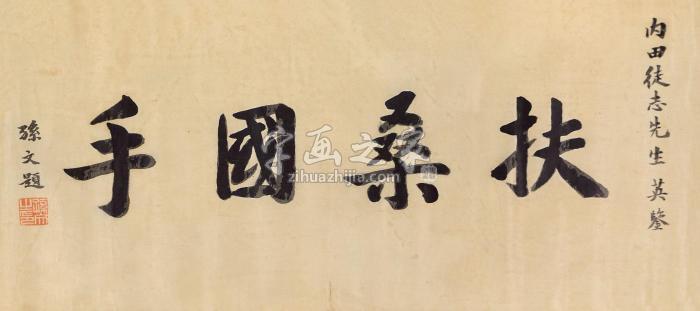 内田徒志先生 英鑒
扶桑國手
孫文題
孫文之印
字画之家
zihuazhijia.com